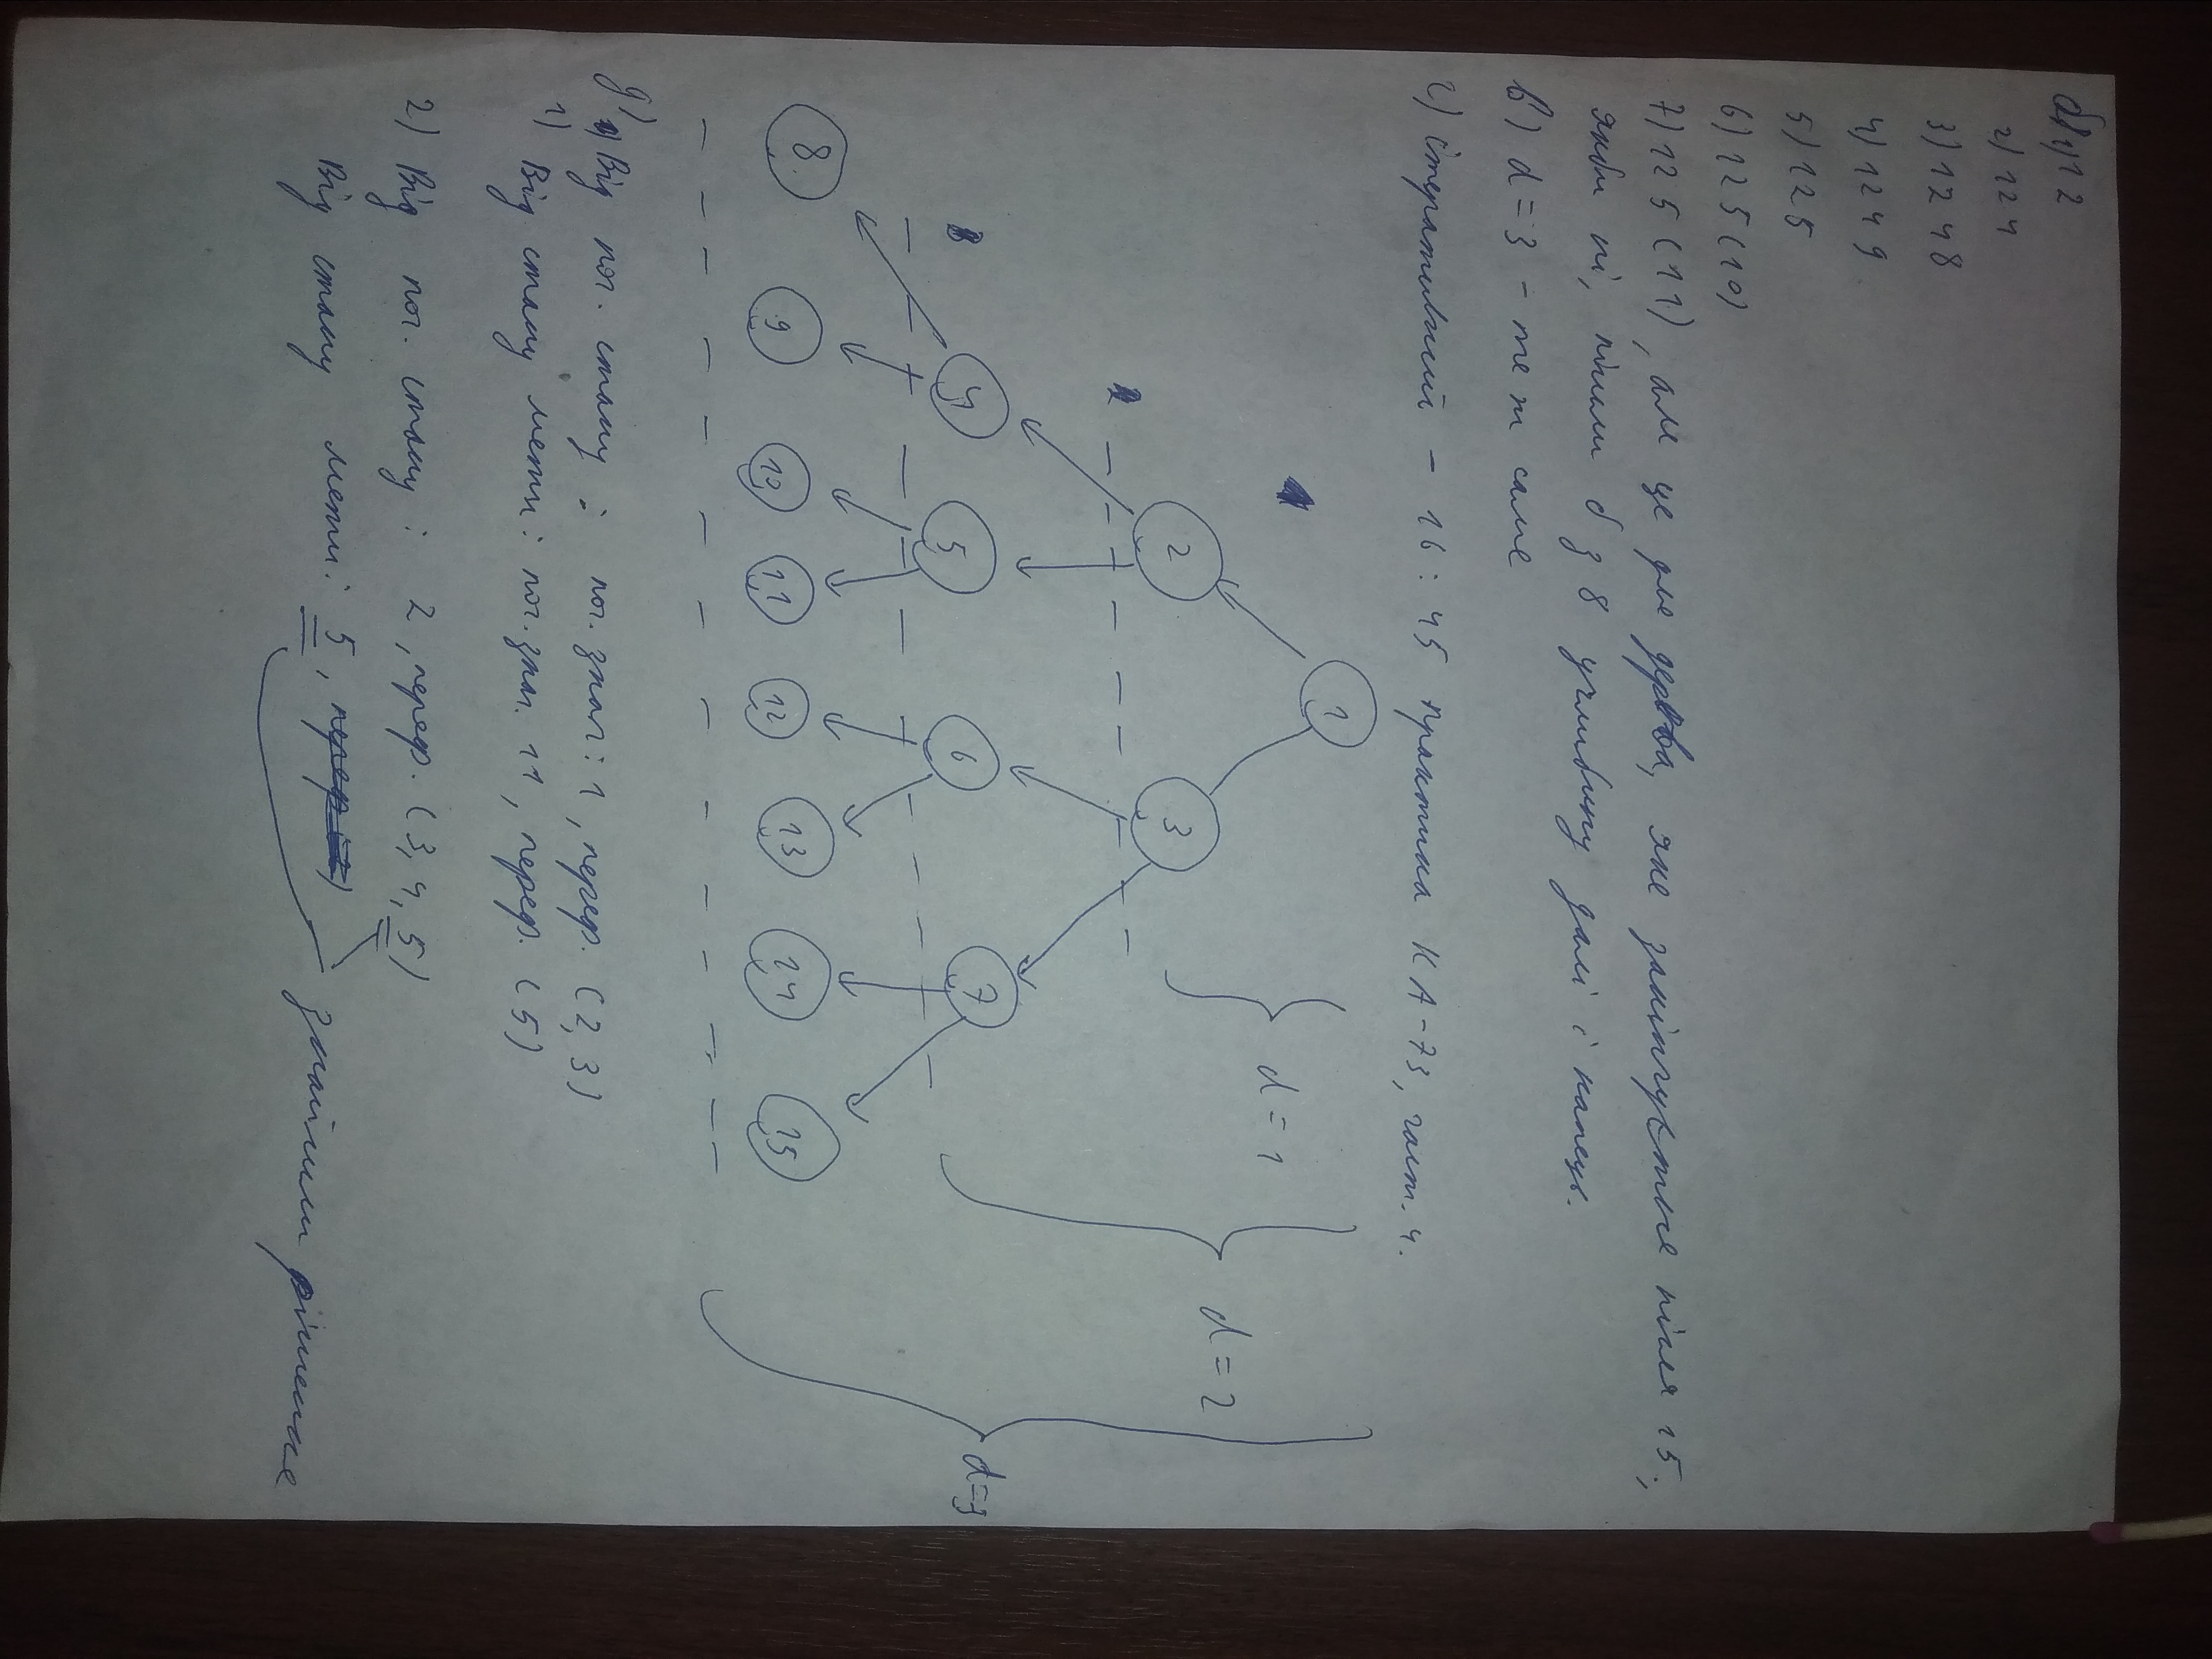 б) 1) 1 2
2) 1 2 4
3) 1 2 4 8
4) 1 2 4 9
5) 1 2 5
6) 1 2 5 (10)
7) 1 2 5 (11), але це для дерева, яке закінгується після 15,
якби ні, пішли б з 8 углибину далі і
в) d=3 - те ж саме
г) Ітеративний - 16:45 практика КА-73, част. 4.
1
2 3
d=1
4 5 6 7
d=2
8 9 10 11 12 13 14 15
d=3
д) Від поч. стану: поч. знач: 1, перер. (2, 3)
1) Від стану мети: поч. знач. 11, перер. (5)
2) Від поч. стану: 2, перер. (3, 4, 5)
Від стану мети: 5,
знайшли рішення